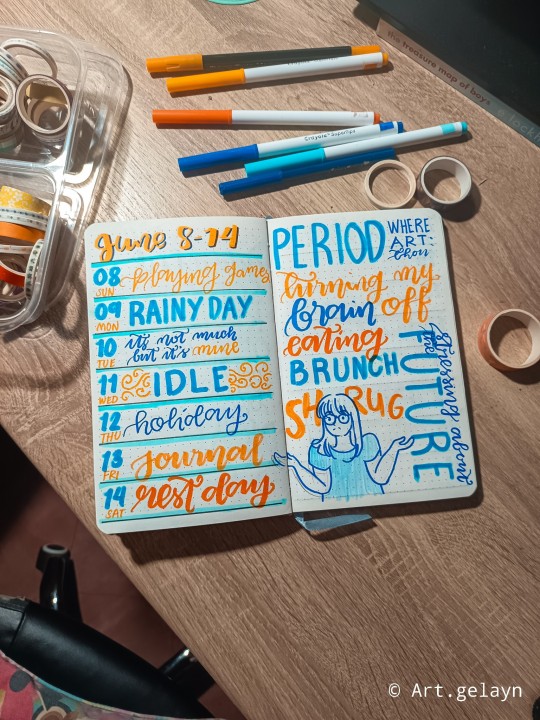 June 8-14
08 SUN playing games
09 MON RAINY DAY
10 TUE it's not much
but it's mine
11 WED IDLE
12 THU holiday
13 FRI journal
14 SAT rest day
PERIOD WHERE
ART:
thou
turning my
brain off
eating
BRUNCH
SHRUG
stressing about
the FUTURE
Crayola SuperTips
the treasure map of boys
© Art.gelayn